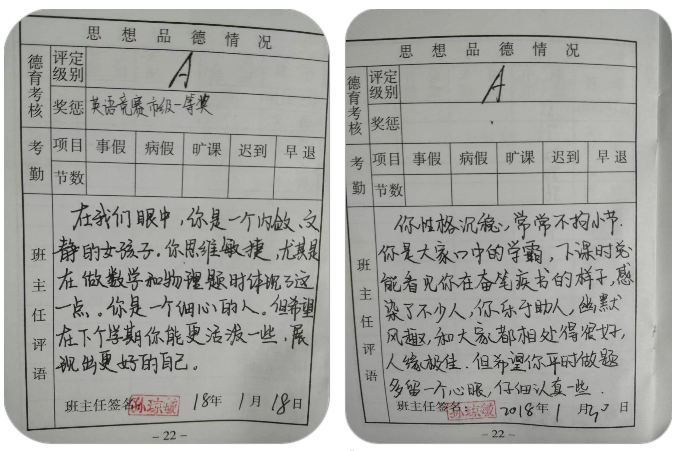 思想品德情况
德育考核
评定级别
A
奖惩
英语竞赛市级一等奖
考勤
项目 事假 病假 旷课 迟到 早退
节数
班主任评语
在我们眼中,你是一个内敛、文
静的女孩子。你思维敏捷,尤其是
在做数学和物理题时体现了这
一点。你是一个细心的人。但希望
在下个学期你能更活泼一些,展
现出更好的自己。
班主任签名: 孙琼敏 18年 1月 18日
- 22 -
思想品德情况
德育考核
评定级别
A
奖惩
考勤
项目 事假 病假 旷课 迟到 早退
节数
班主任评语
你性格沉稳,常常不拘小节.
你是大家口中的学霸,下课时总
能看见你在奋笔疾书的样子,感
染了不少人,你乐于助人,幽默
风趣,和大家都相处得很好,
人缘极佳.但希望你平时做题
多留一个心眼,仔细认真一些.
班主任签名: 孙琼敏 2018年 1月20日
- 22 -